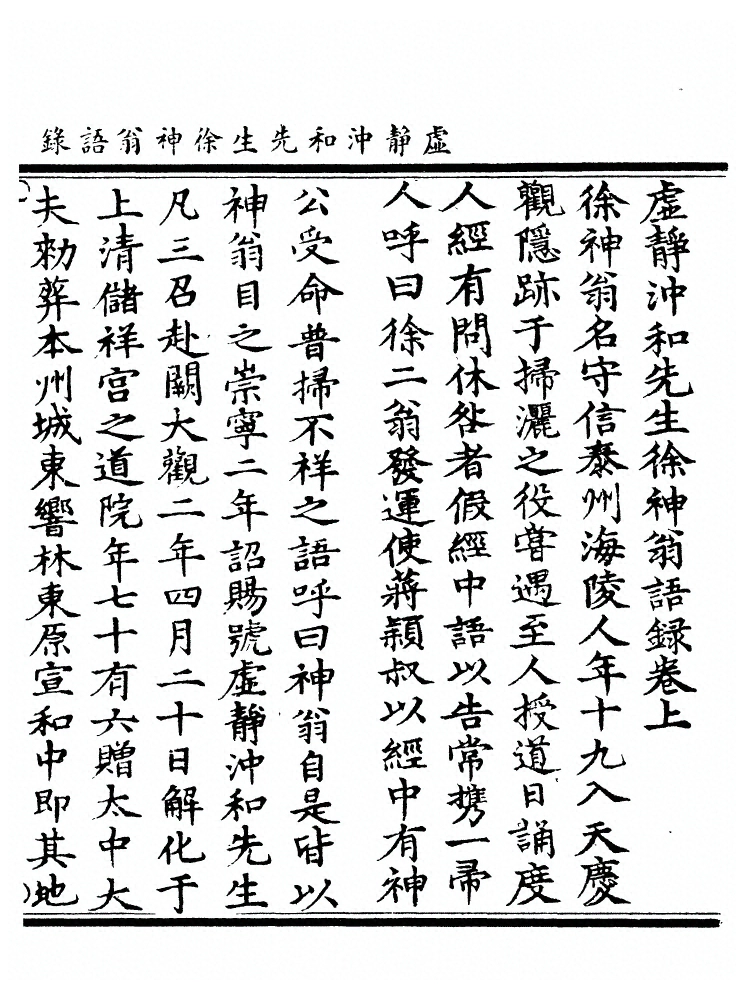 虛靜沖和先生徐神翁語錄
虛靜沖和先生徐神翁語録卷上
徐神翁名守信泰州海陵人年十九入天慶
觀隱跡于掃灑之役甞遇至人授道日誦度
人經有問休咎者假經中語以告常携一帚
人呼曰徐二翁發運使蔣穎叔以經中有神
公受命普掃不祥之語呼曰神翁自是皆以
神翁目之崇寧二年詔賜號虛靜沖和先生
凡三召赴闕大觀二年四月二十日解化于
上清儲祥宫之道院年七十有六贈太中大
夫勑葬本州城東響林東原宣和中即其地